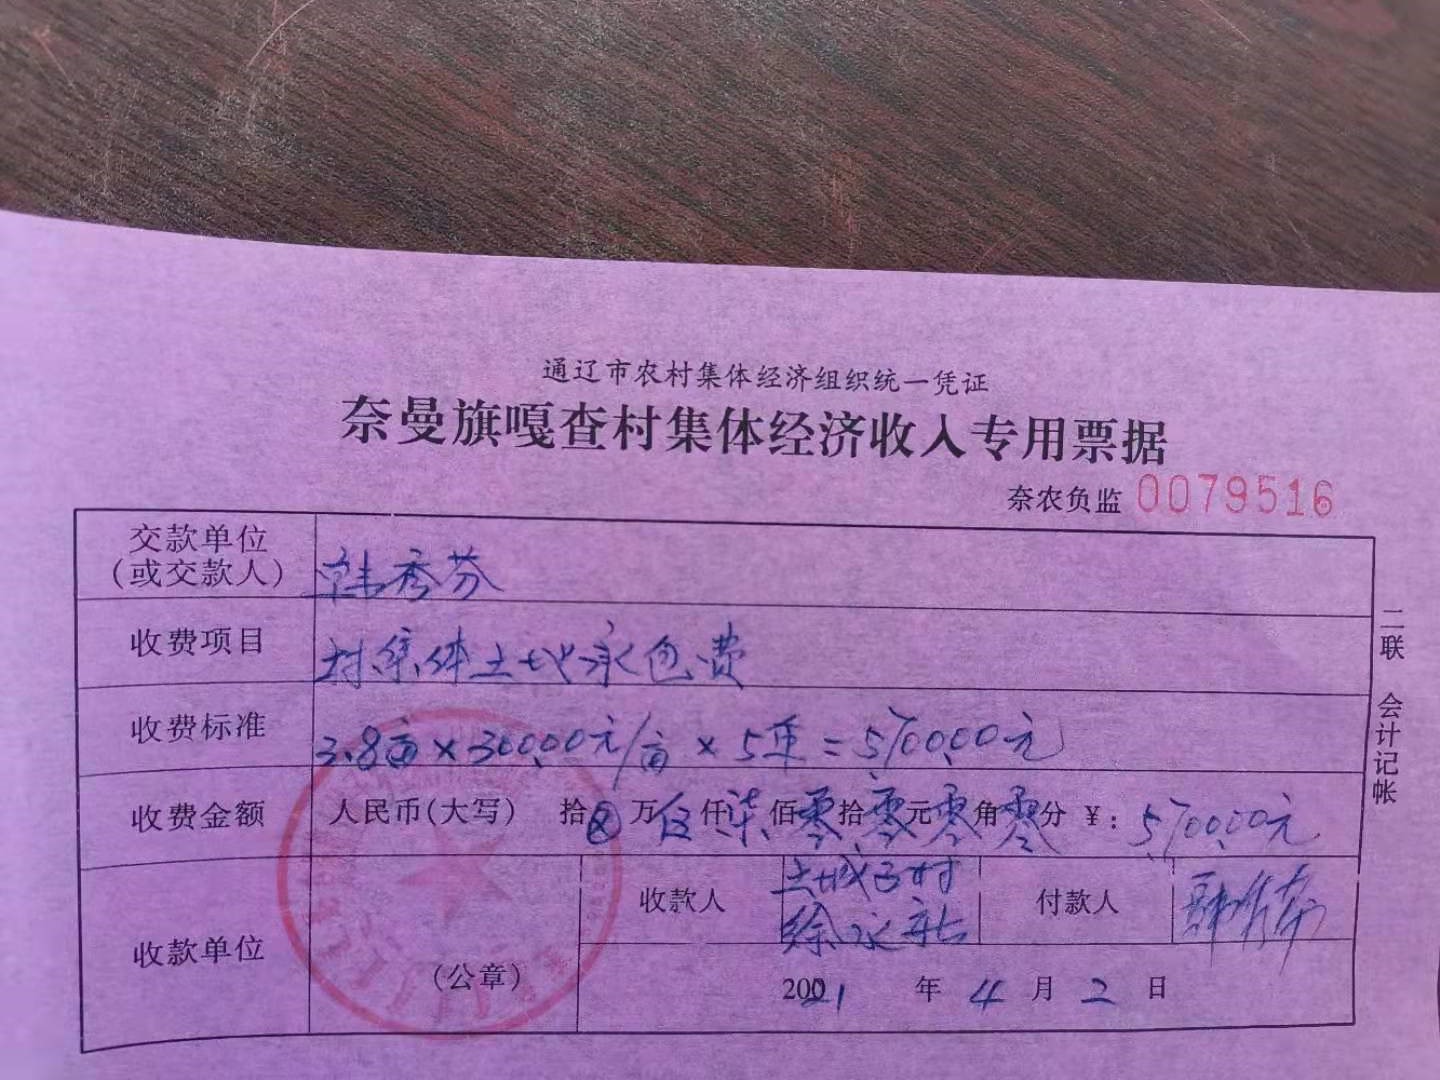 通辽市农村集体经济组织统一凭证
奈曼旗嘎查村集体经济收入专用票据
奈农负监 0079516
交款单位
(或交款人) 韩秀芬
收费项目 村集体土地承包费
收费标准 3.8亩×300.00元/亩×5年=5,700.00元
收费金额 人民币(大写) 拾⊗万伍仟柒佰零拾零元零角零分 ¥:5,700.00元
收款单位 (公章) 收款人 土城子村
付款人
2021年4月2日
二联 会计记帐